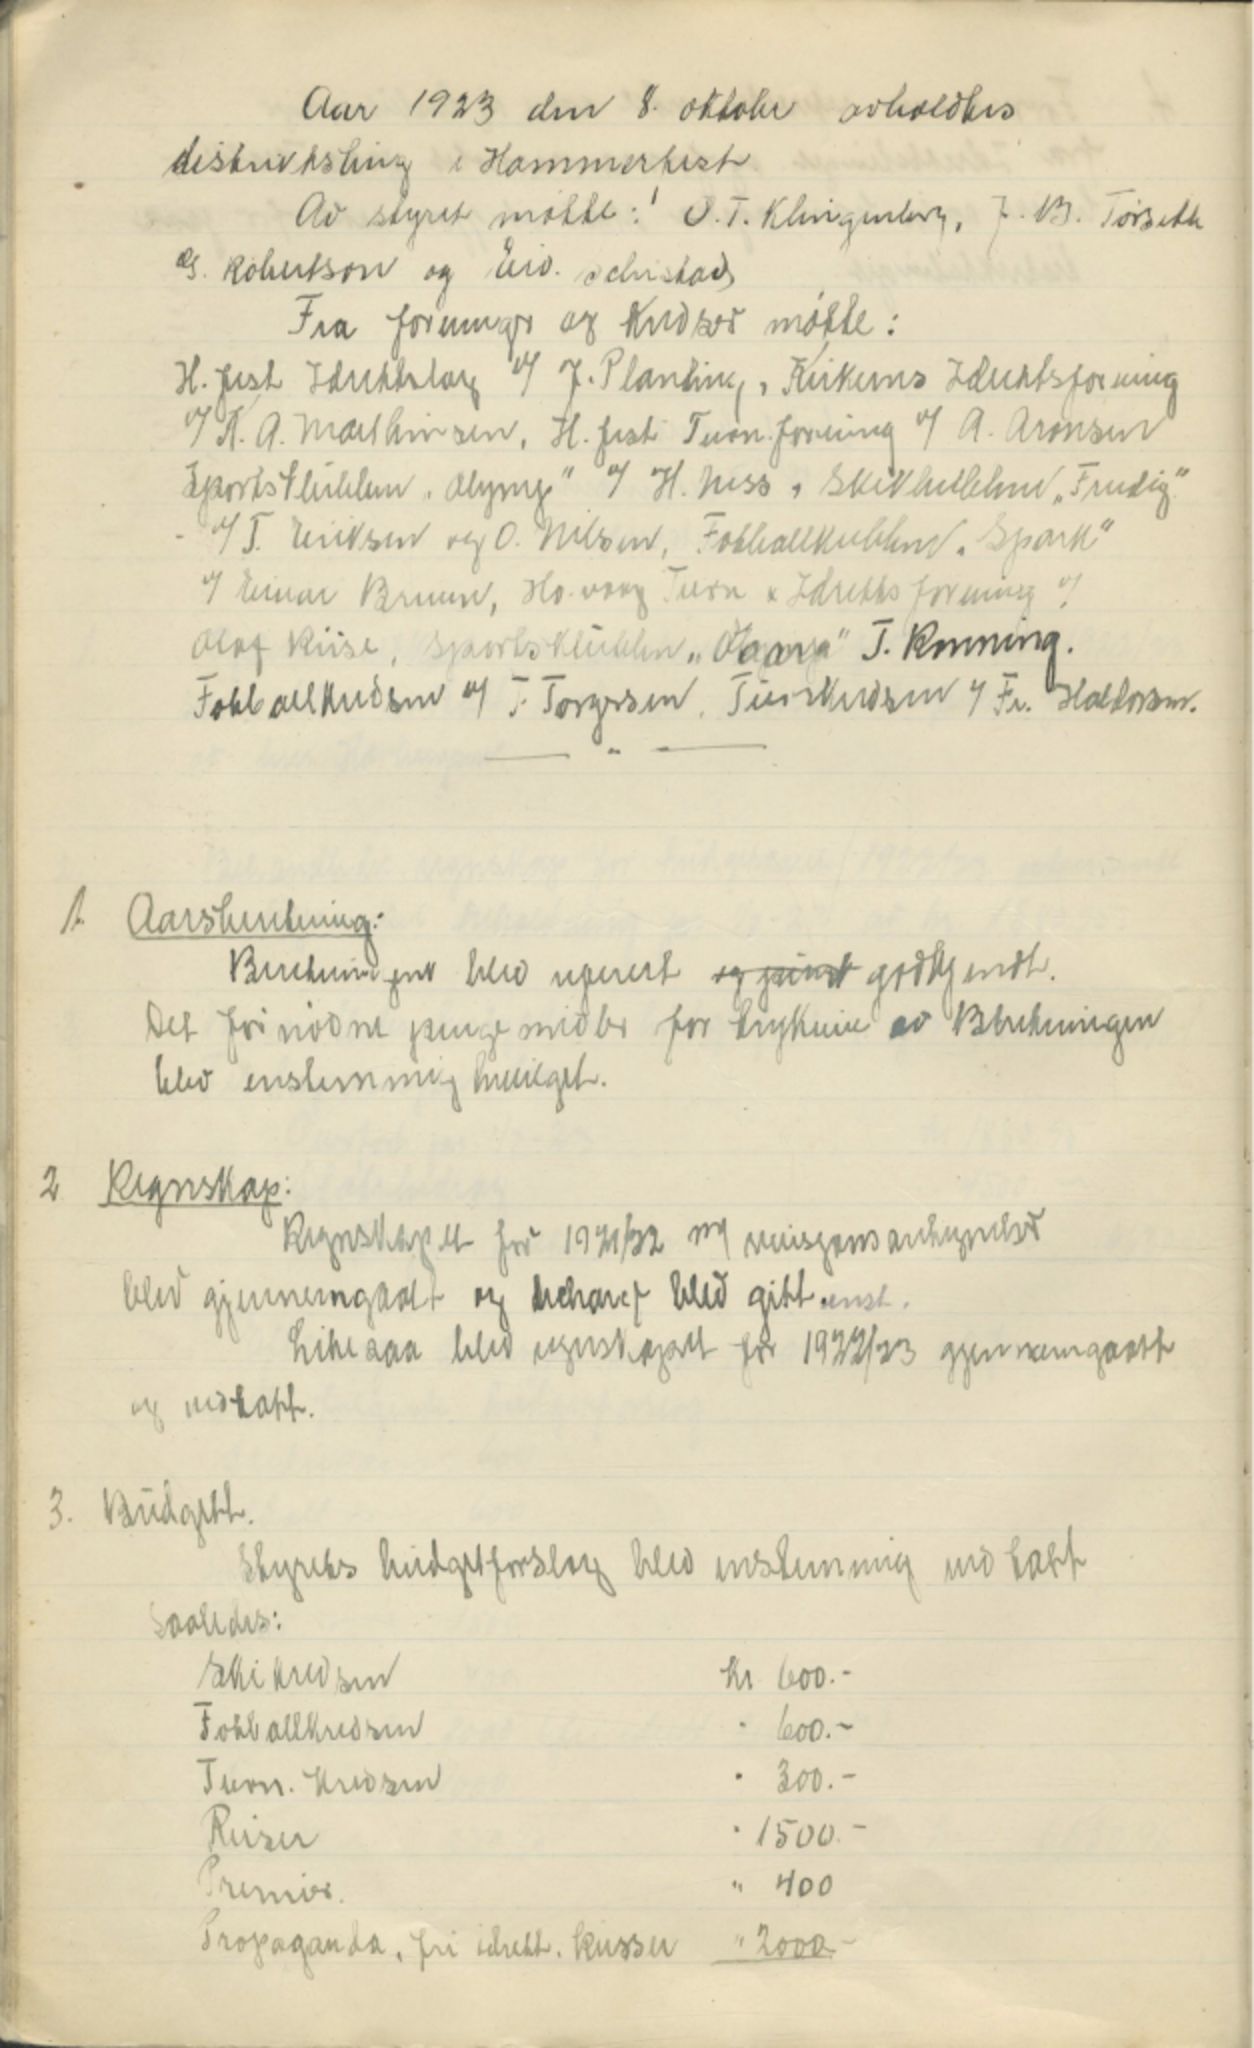 Aar 1923 den 8. oktober avholdtes
distriktsting i Hammerfest
Av styret møtte: O. T. Klingenberg, J. B. Torseth
G. Robertson og Eiv. Schistad
Fra foreninger og Kredser møtte:
H. fest Idrettslag v/ J. Planting, Kirkenes Idrettsforening
v/ K. A. Mathinsen, H. fest Turn.forening v/ A. Aronsen
Sportsklubben v/ H. Ness, Skiklubben „Freidig"
v/ T. Eriksen og O. Nilsen, Fotballklubben „Spark"
v/ Einar Bruun, Ho.vaag Turn & Idrettsforening v/
Olaf Kiise, Sportsklubben T. Rønning.
Fotballkredsen v/ T. Torgersen, Turnkredsen v/ Fr. Haldorsen.
1. Aarsberetning:
Beretningen blev referert og godkjendt.
Det fornødne penge midler for trykning av Beretningen
blev enstemmig bevilget.
2 Regnskap:
Regnskapet for 1921/22 m/ revisjonsantegnelser
blev gjennemgaat og decharge blev gitt enst.
Likesaa blev regnskapet for 1922/23 gjennemgaatt
og vedtatt.
3. Budgett.
Styrets budgetforslag blev enstemmig vedtatt
Saaledes:
Skikredsen kr 600.-
Fotballkredsen " 600.-
Turn. kredsen " 300.-
Reiser " 1500.-
Premier. " 400
Propaganda, fri idrett. kurser " 2000-